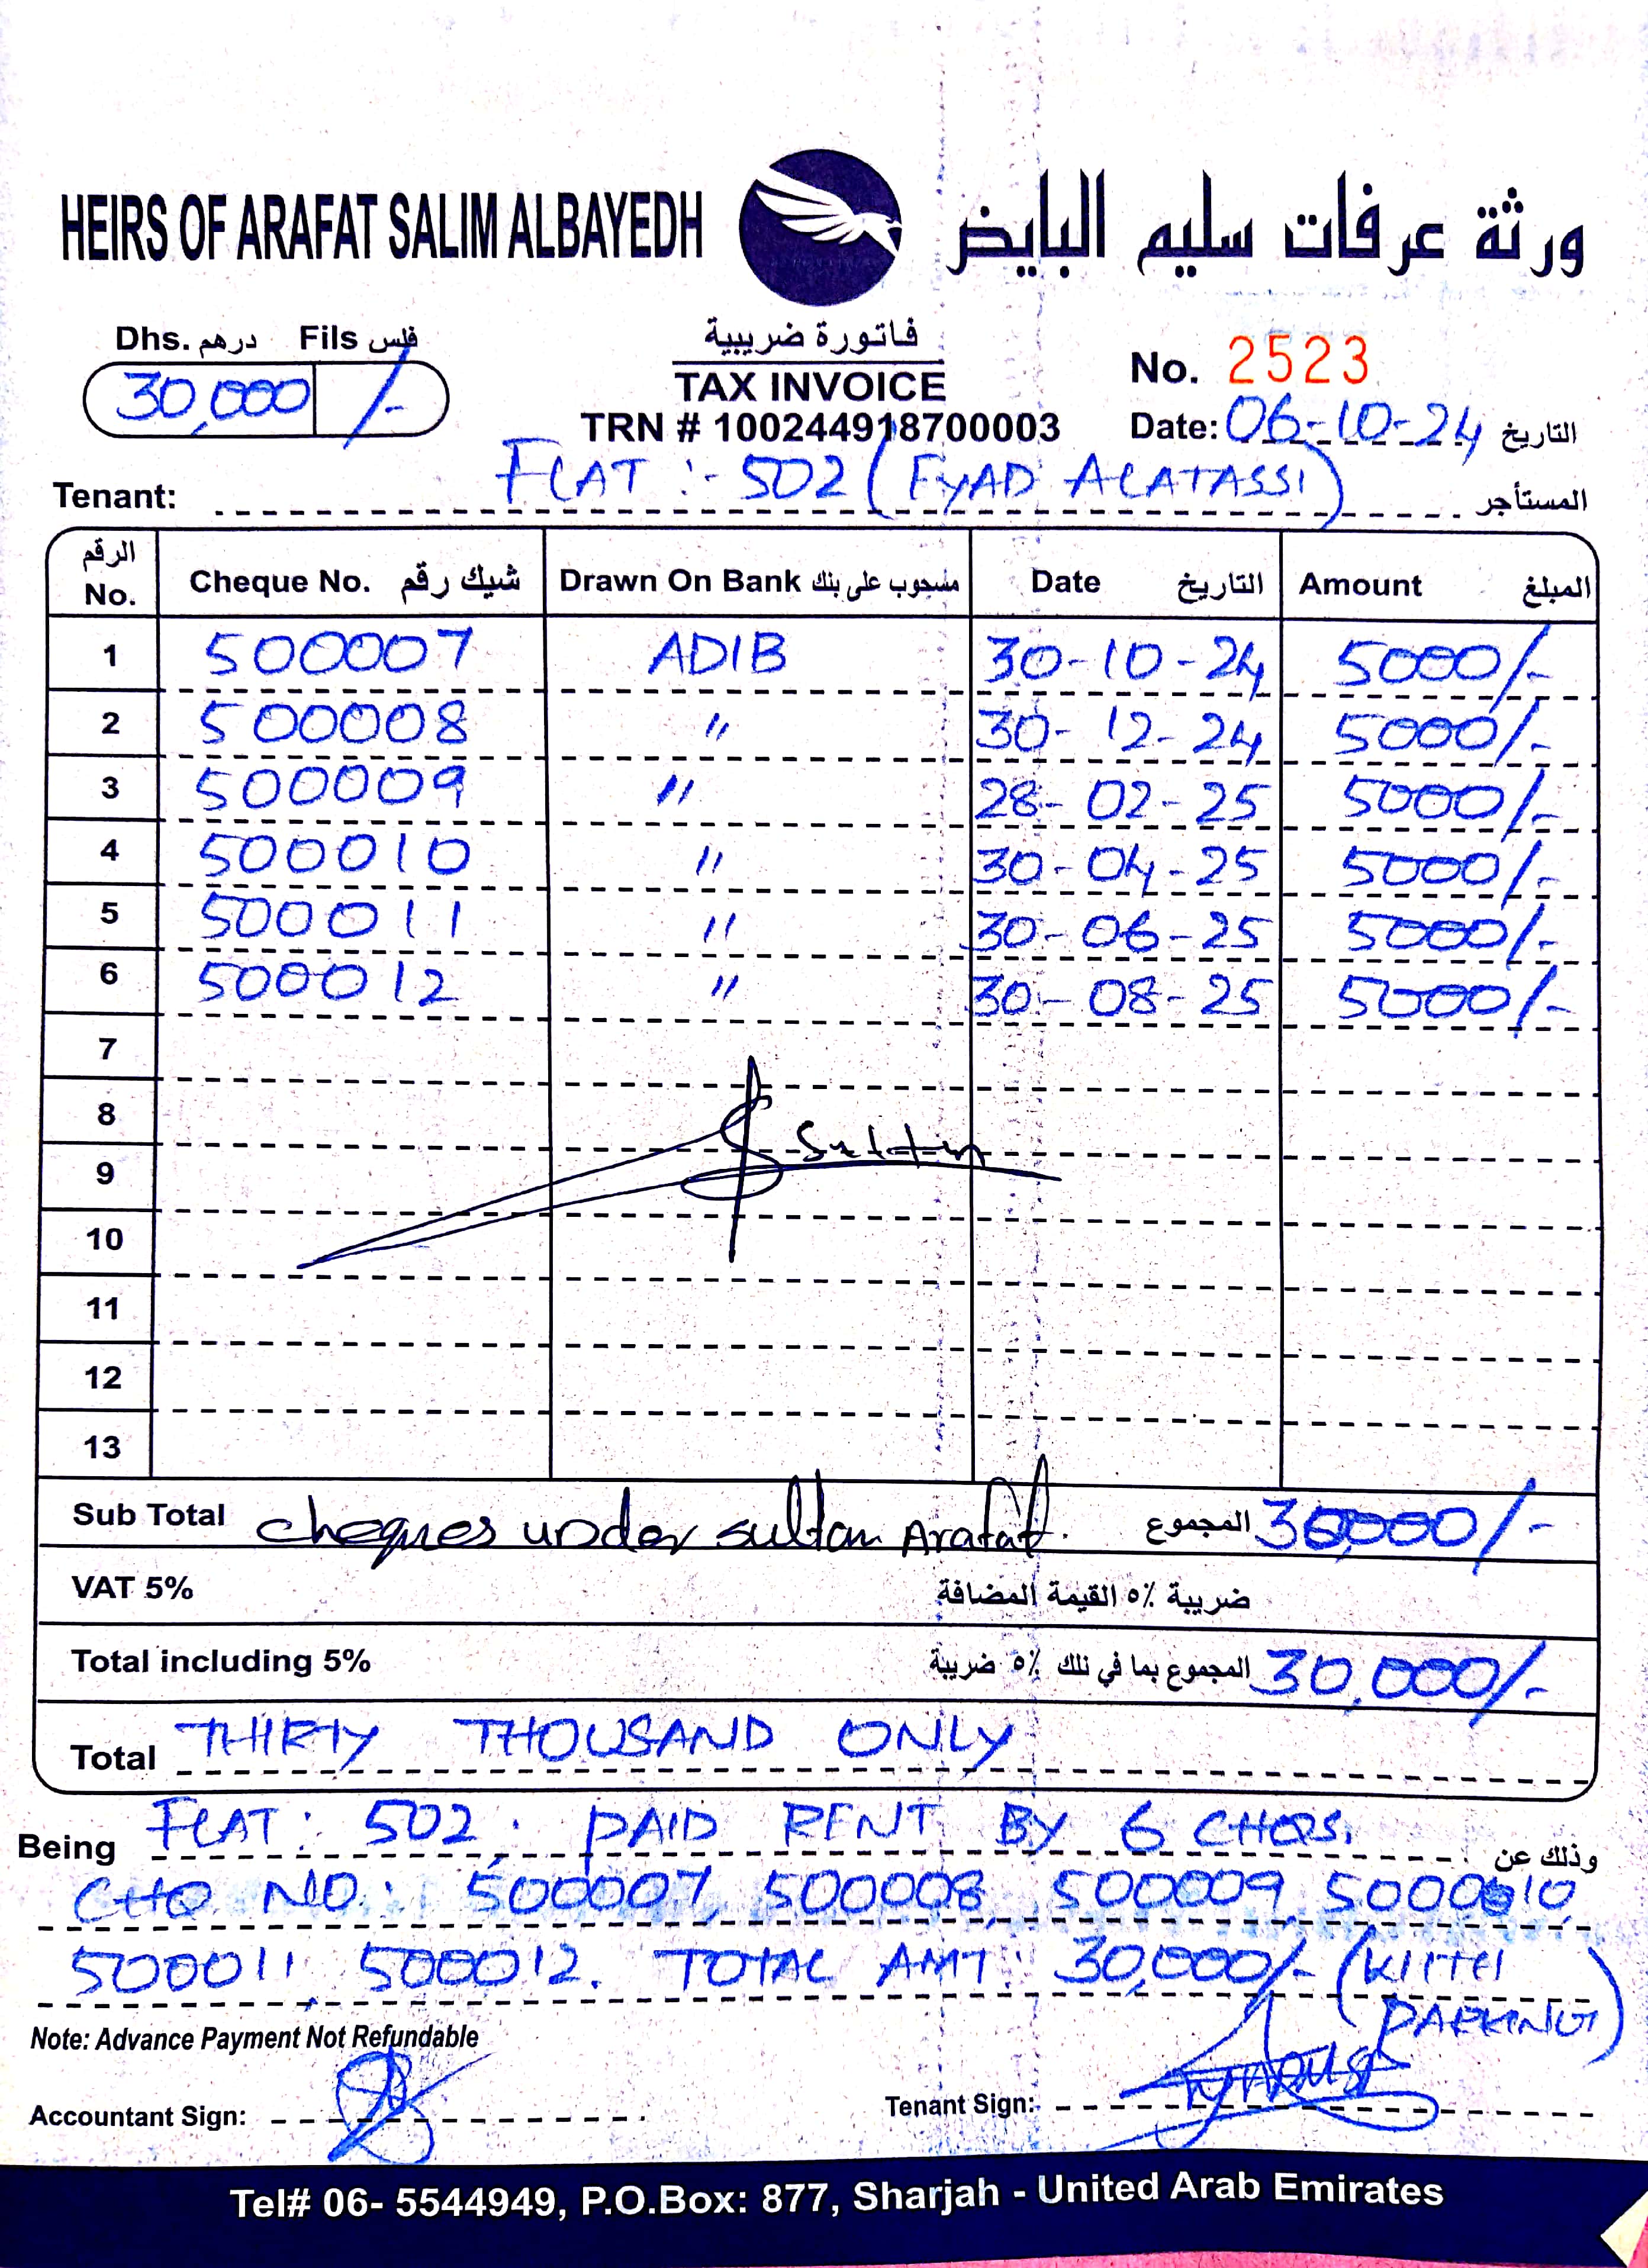 HEIRS OF ARAFAT SALIM ALBAYEDH ورثة عرفات سليم البايض
Dhs. درهم Fils فلس
30,000 /-
فاتورة ضريبية
TAX INVOICE
TRN # 100244918700003
No. 2523
Date: 06-10-24 التاريخ
Tenant: FLAT :- 502 (EYAD ALATASSI) المستأجر
الرقم No. Cheque No. شيك رقم Drawn On Bank مسحوب على بنك Date التاريخ Amount المبلغ
1 500007 ADIB 30-10-24 5000/-
2 500008 " 30-12-24 5000/-
3 500009 " 28-02-25 5000/-
4 500010 " 30-04-25 5000/-
5 500011 " 30-06-25 5000/-
6 500012 " 30-08-25 5000/-
7
8
Sultan
9
10
11
12
13
Sub Total cheques under sultan Arafat. المجموع 30,000/-
VAT 5% ضريبة ٥٪ القيمة المضافة
Total including 5% المجموع بما في ذلك ٥٪ ضريبة 30,000/-
Total THIRTY THOUSAND ONLY
Being FLAT: 502. PAID RENT BY 6 CHQS. وذلك عن
CHQ NO: 500007, 500008, 500009, 5000010,
500011, 500012. TOTAL AMT: 30,000/- (WITH
PARKING)
Note: Advance Payment Not Refundable
Accountant Sign:
Tenant Sign:
Tel# 06- 5544949, P.O.Box: 877, Sharjah - United Arab Emirates